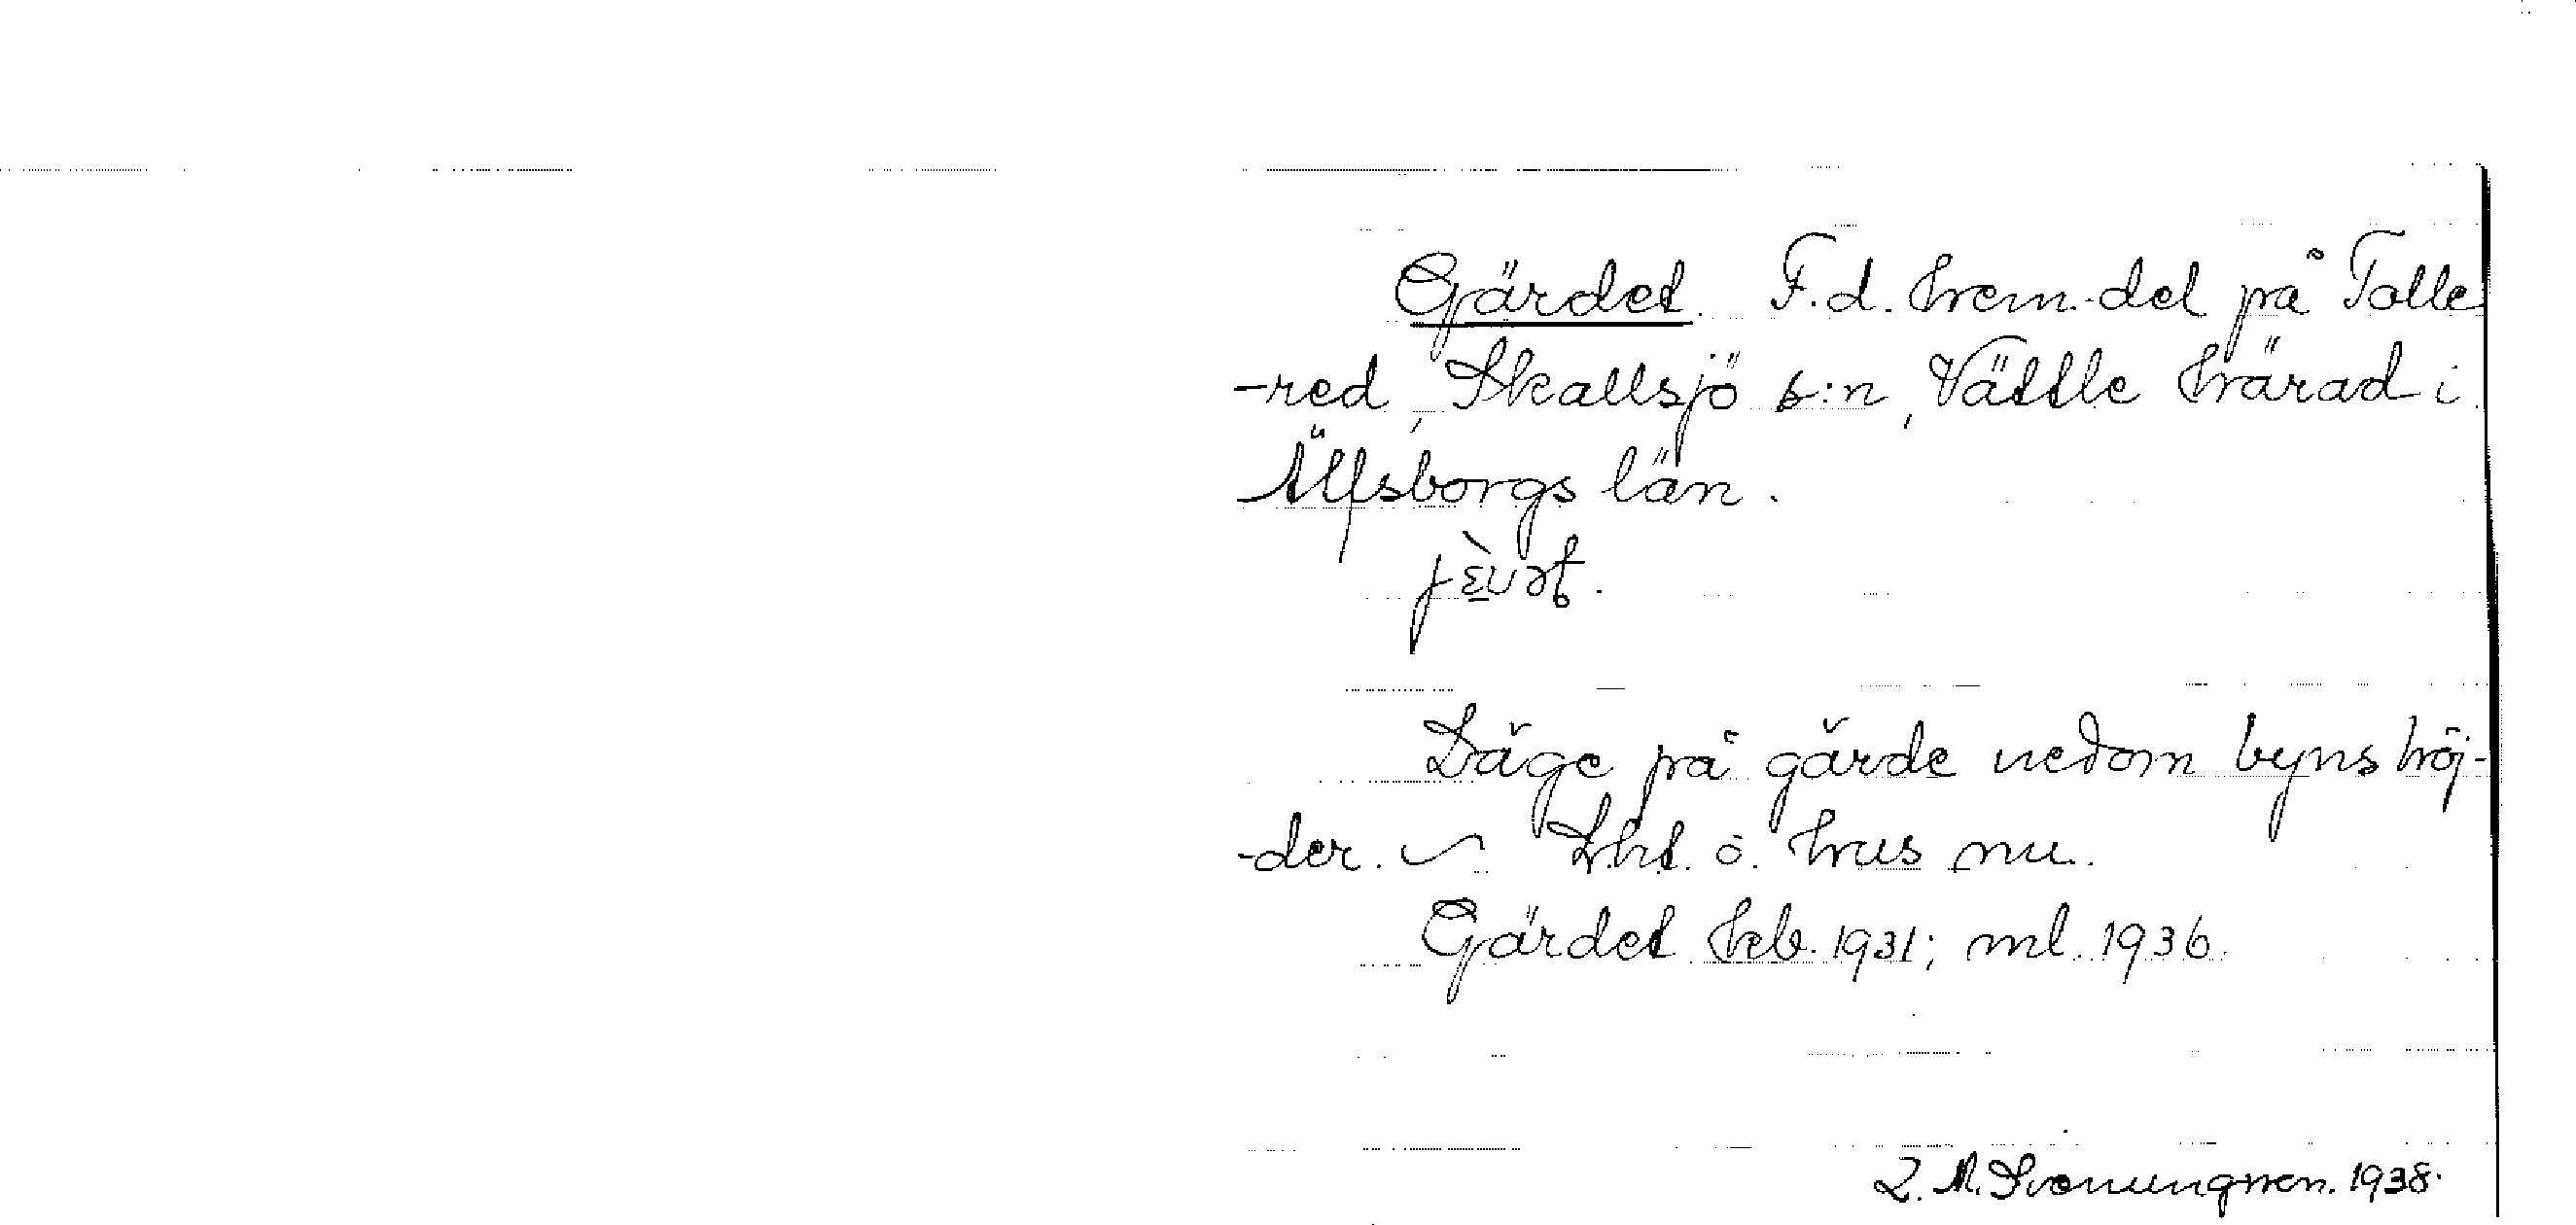 Gärdet. F.d. hem.-del på Tolle
-red, Skallsjö s:n, Vättle härad i
Älfsborgs län.
Läge på gärde nedom byns höj-
-der. Lht. o. hus nu.
Gärdet Hcb. 1931; ml. 1936.
L. M. Svenungsson. 1938.